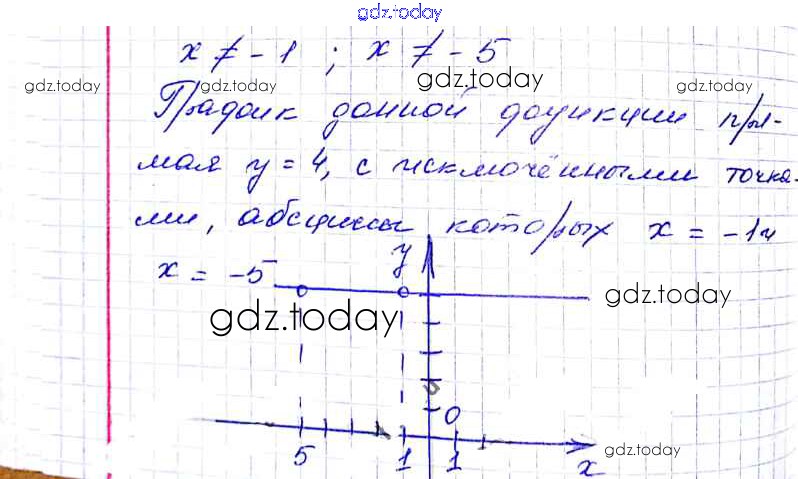 gdz.today
x ≠ -1 ; x ≠ -5
gdz.today gdz.today gdz.today
График данной функции пря-
мая y = 4, с исключёнными точка-
ми, абсциссы которых x = -1 и
x = -5
y
gdz.today
gdz.today
0
5 1 1 x
gdz.today